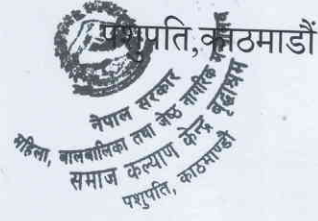 पशुपति, काठमाडौं
नेपाल सरकार
महिला, बालबालिका तथा जेष्ठ नागरिक
समाज कल्याण केन्द्र वृद्धाश्रम
पशुपति, काठमाण्डौ